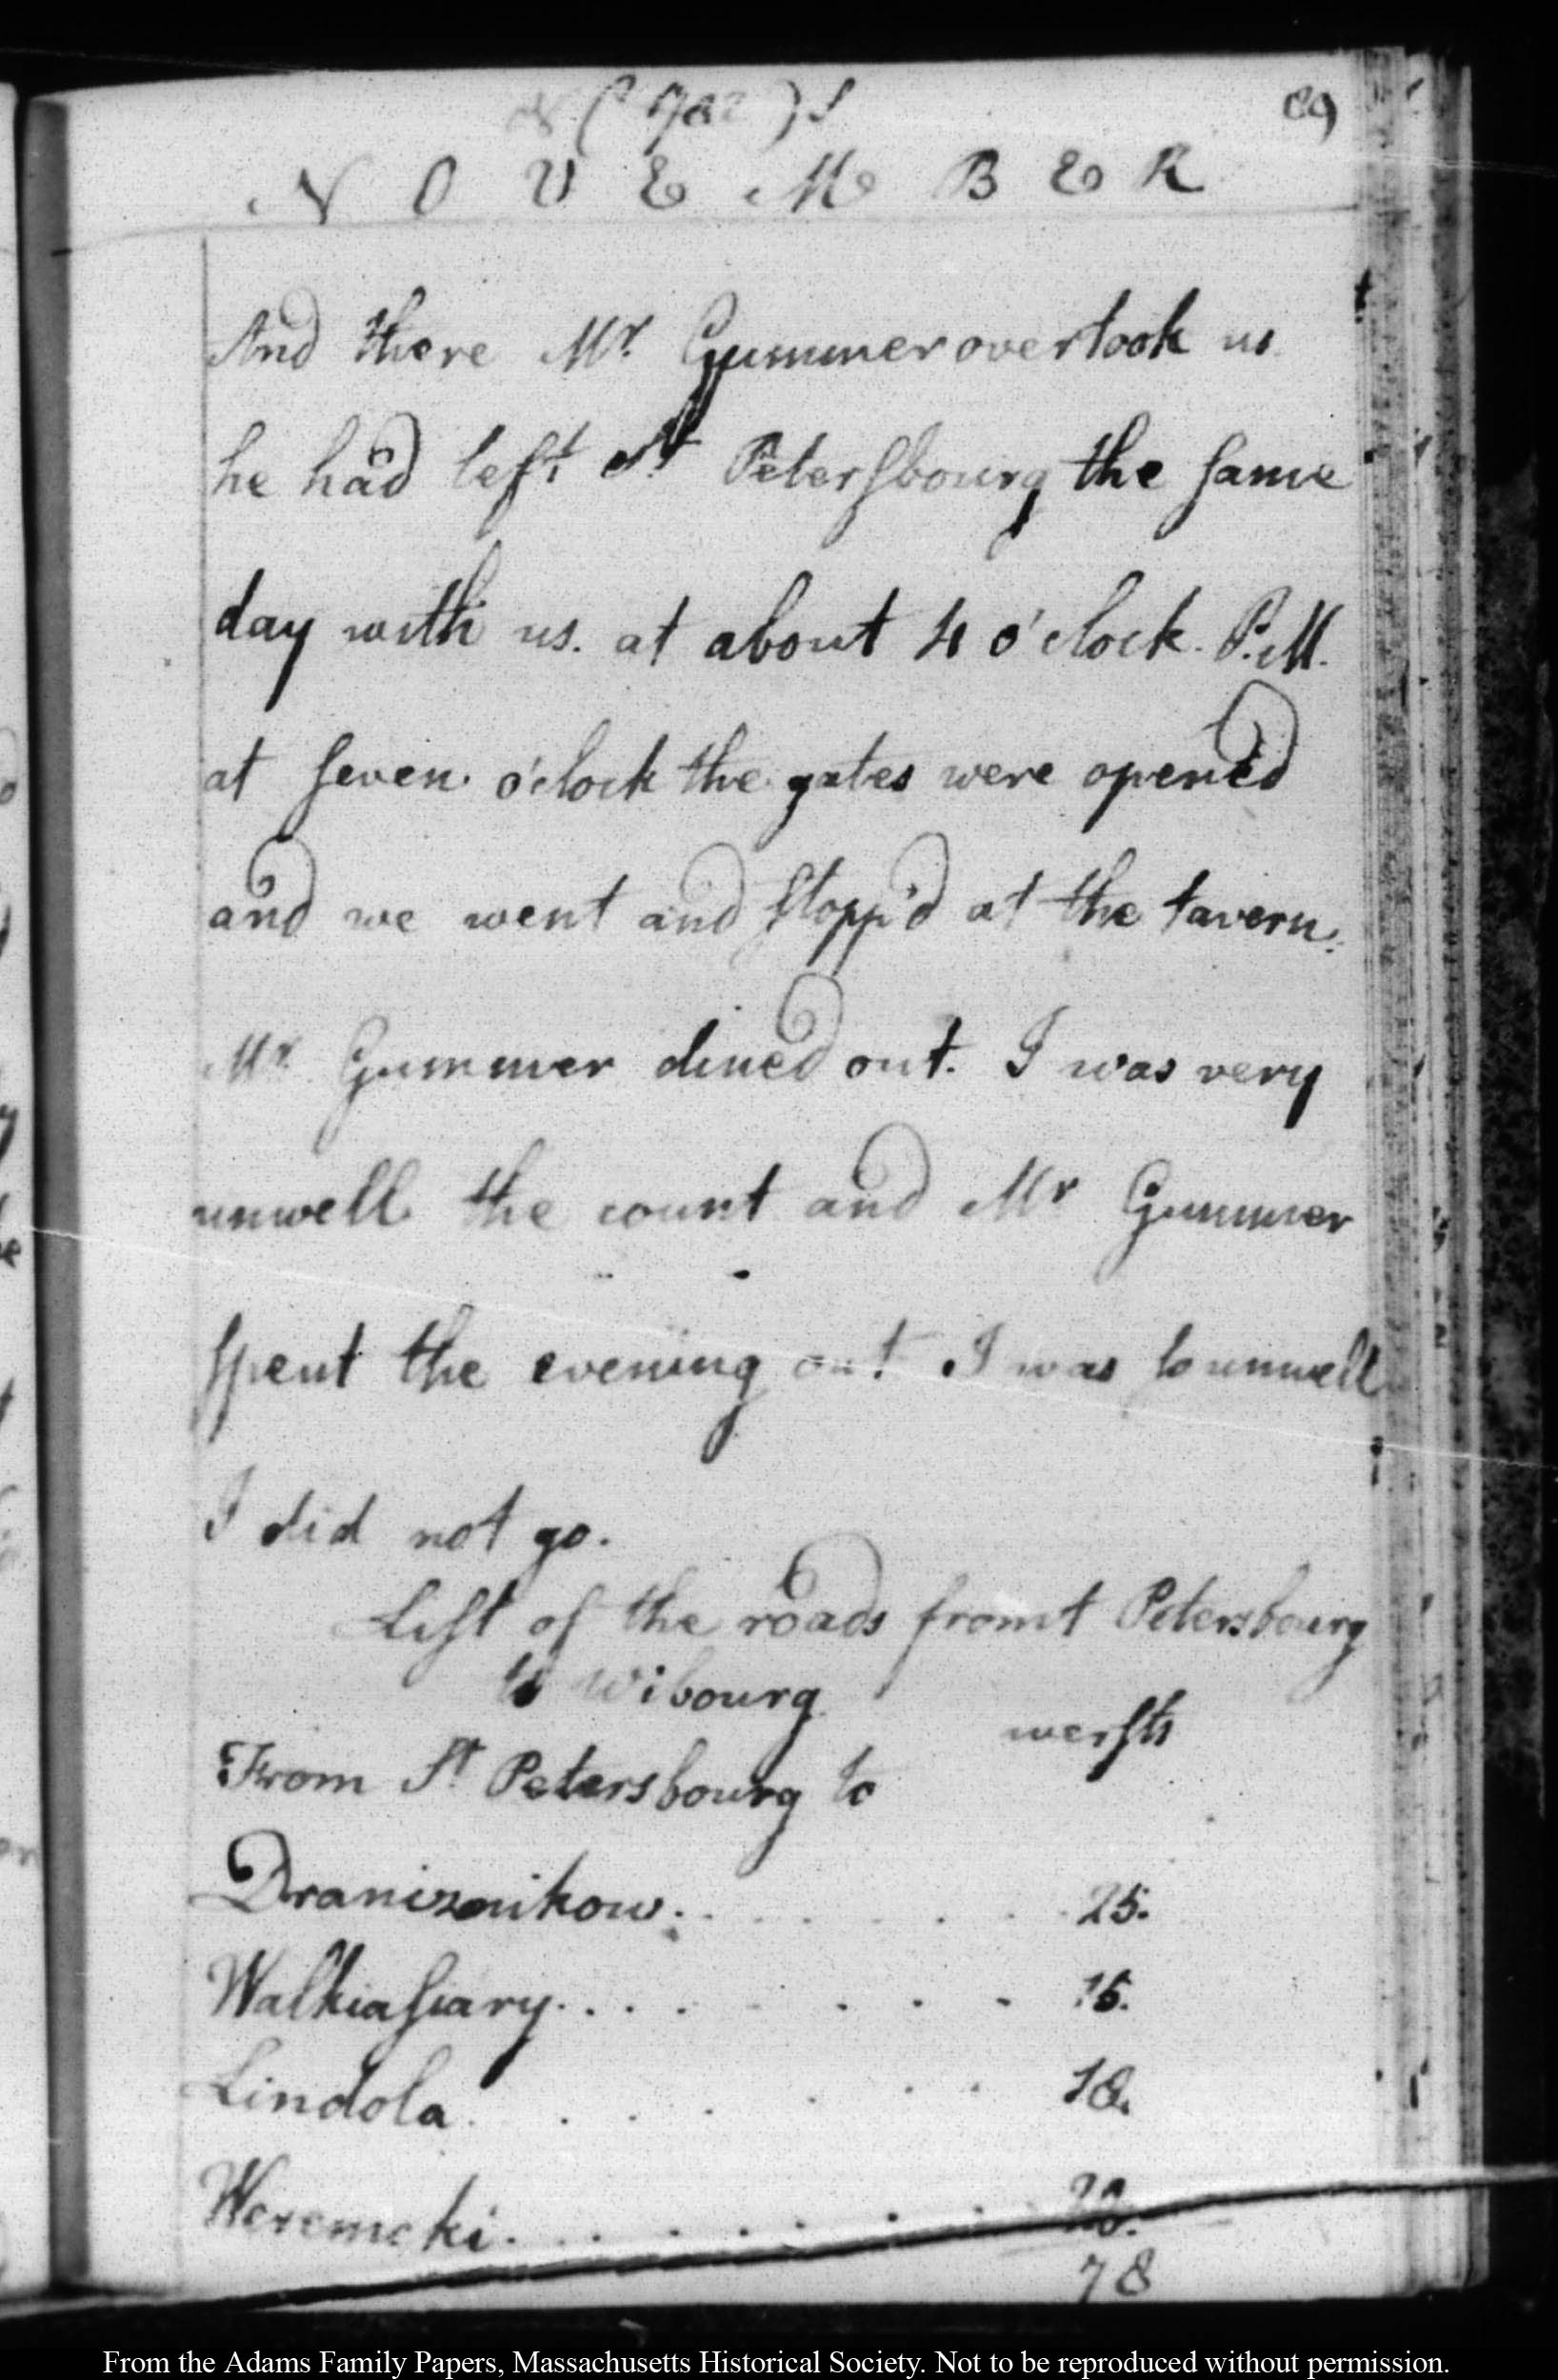 (1782)
89
NOVEMBER
And there Mr. Gummer overtook us
he had left St Petersbourg the same
day with us. at about 4 o'clock. P.M.
at seven o'clock the gates were opened
and we went and stopp'd at the tavern.
Mr Gummer dined out. I was very
unwell the count and Mr Gummer
spent the evening out I was so unwell
I did not go.
List of the roads from t Petersbourg
to Wibourg
wersts
From St Petersbourg to
Dranisnikow. . . . . . . 25.
Walkiasiary. . . . . . . . 15.
Lindola. . . . . . . 18.
Weremeki. . . . . . . 20.
78
From the Adams Family Papers, Massachusetts Historical Society. Not to be reproduced without permission.